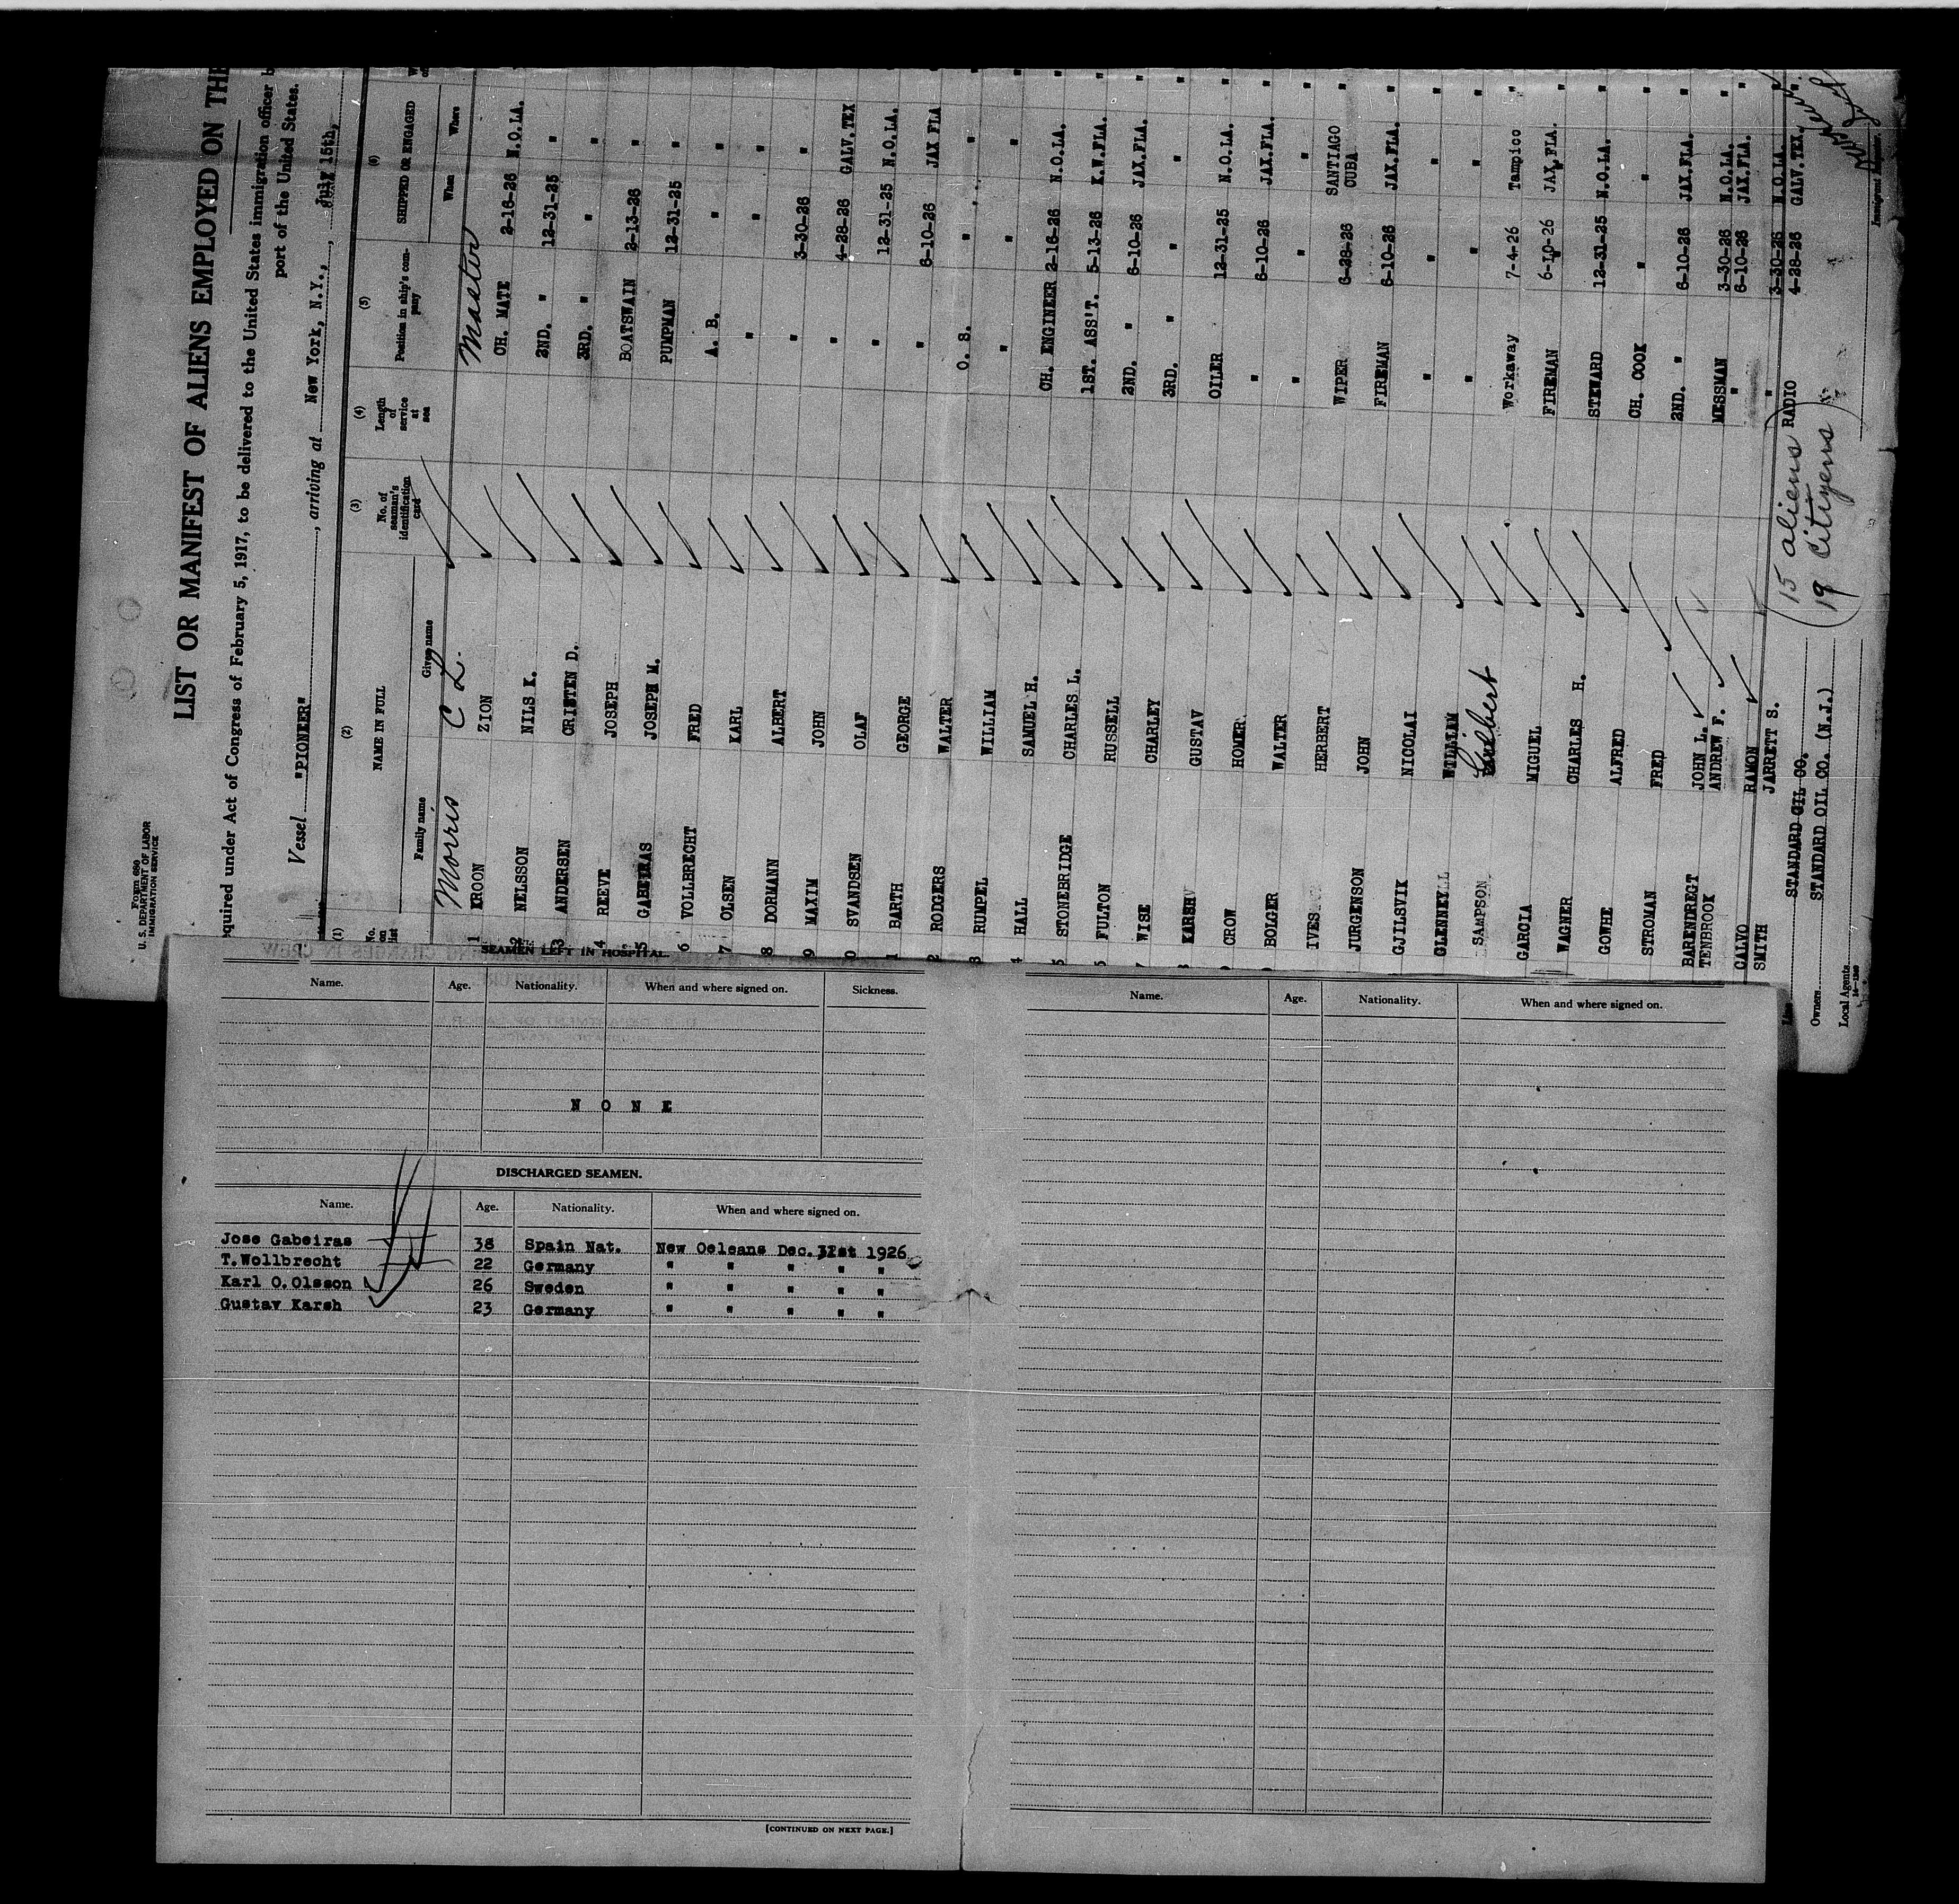 Form 680
U. S. DEPARTMENT OF LABOR
IMMIGRATION SERVICE
LIST OR MANIFEST OF ALIENS EMPLOYED ON THE
equired under Act of Congress of February 5, 1917, to be delivered to the United States immigration officer b
port of the United States.
Vessel "PIONEER", arriving at New York, N.Y., July 15th,
(1) (2) (3) (4) (5) (6)
No. on list NAME IN FULL No. of seaman's identification card Length of service at sea Position in ship's company SHIPPED OR ENGAGED
Family name Given name When Where
Morris C L. Master
1 KROON ZION CH. MATE 2-16-26 N.O.LA.
2 NELSSON NILS K. 2ND. " 12-31-25 "
3 ANDERSEN CRISTEN D. 3RD. " " "
4 REEVE JOSEPH BOATSWAIN 2-13-26 "
5 GABEIRAS JOSEPH M. PUMPMAN 12-31-25 "
6 VOLLBRECHT FRED A. B. " "
7 OLSEN KARL " " "
8 DORMANN ALBERT " 3-30-26 "
9 MAXIM JOHN " 4-28-26 GALV.TEX
0 SVANDSEN OLAF " 12-31-25 N.O.LA.
1 BARTH GEORGE " 6-10-26 JAX FLA
2 RODGERS WALTER O. S. " "
3 RUMPEL WILLIAM " " "
4 HALL SAMUEL H. CH. ENGINEER 2-16-26 N.O.LA.
5 STONEBRIDGE CHARLES L. 1ST. ASS'T. 5-13-26 K.W.FLA.
6 FULTON RUSSELL 2ND. " 6-10-26 JAX.FLA.
7 WISE CHARLEY 3RD. " " "
8 KARSH GUSTAV OILER 12-31-25 N.O.LA.
9 CROW HOMER " 6-10-26 JAX.FLA.
0 BOLGER WALTER " " "
IVES HERBERT WIPER 6-28-26 SANTIAGO CUBA
JURGENSON JOHN FIREMAN 6-10-26 JAX.FLA.
GJILSVIK NICOLAI " " "
GLENNEYLL WILLIAM " " "
SAMPSON Gilbert Workaway 7-4-26 Tampico
GARCIA MIGUEL FIREMAN 6-10-26 JAX.FLA.
WAGNER CHARLES H. STEWARD 12-31-25 N.O.LA.
GOWHE ALFRED CH. COOK " "
STROMAN FRED 2ND. " 6-10-26 JAX.FLA.
BARENDREGT JOHN L. MESSMAN 3-30-26 N.O.LA.
TENBROOK ANDREW F. " 6-10-26 JAX.FLA.
CALVO RAMON " 3-30-26 N.O.LA.
SMITH JARRETT S. RADIO 4-28-26 GALV.TEX.
STANDARD OIL CO.
Owners STANDARD OIL CO. (N.J.)
Local Agents
(15 aliens)
(19 citizens)
Immigrant Inspector.
SEAMEN LEFT IN HOSPITAL.
Name. Age. Nationality. When and where signed on. Sickness.
N O N E
DISCHARGED SEAMEN.
Name. Age. Nationality. When and where signed on.
Jose Gabeiras 38 Spain Nat. New Oeleans Dec. 31st 1926
T.Wollbrecht 22 Germany " " " " "
Karl O.Olsson 26 Sweden " " " " "
Gustav Karsh 23 Germany " " " " "
[CONTINUED ON NEXT PAGE.]
Name. Age. Nationality. When and where signed on.